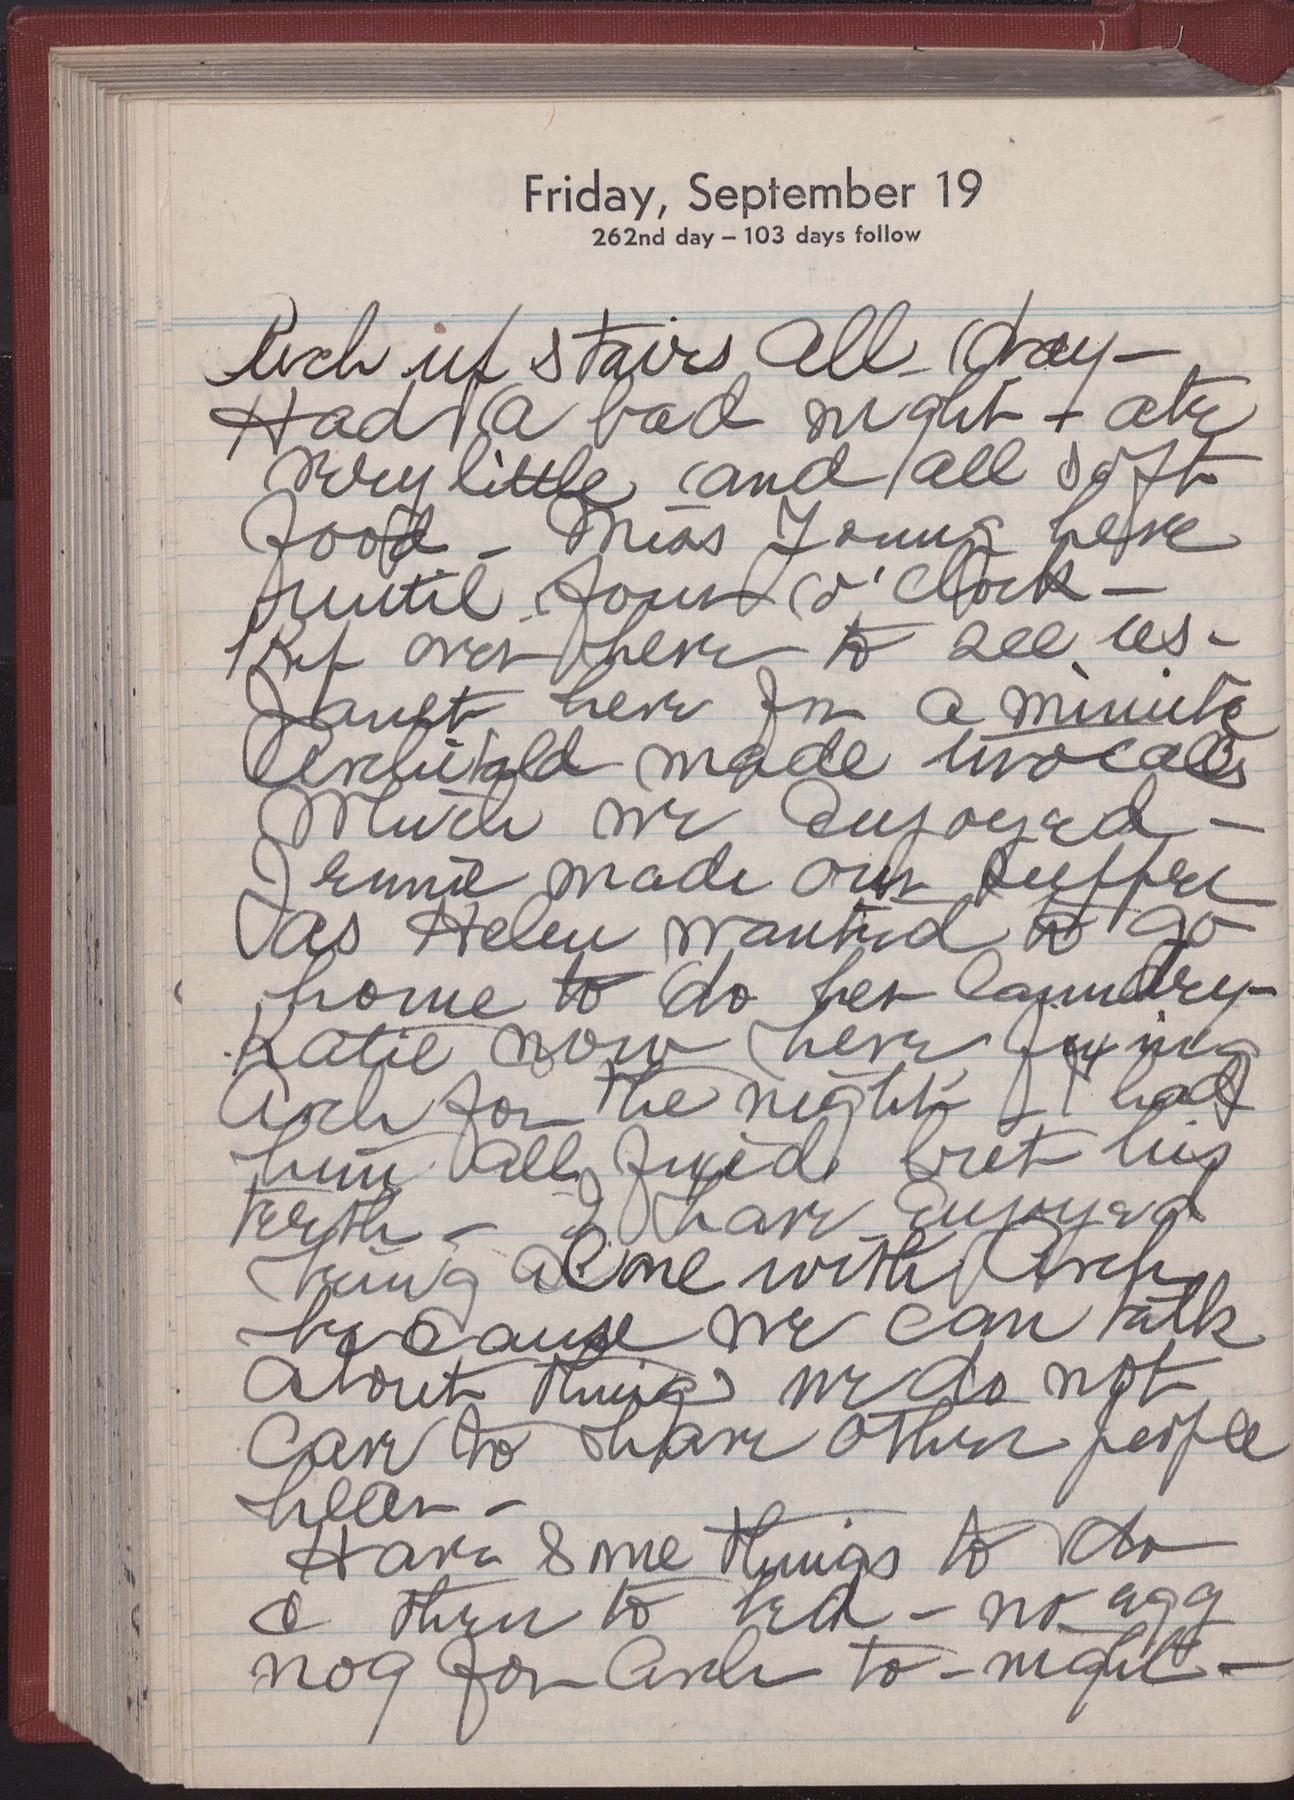 Friday, September 19
262nd day – 103 days follow
Arch up stairs all day –
Had a bad night + ate
very little and all soft
food – Miss Young here
until four o'clock –
over here to see us –
Janet here for a minute
Archibald made two calls
Which we enjoyed –
Jennie made our supper
as Helen wanted to go
home to do her laundry –
Katie now here fixing
Arch for the night – I had
him all fixed but his
teeth – I have enjoyed
being alone with Arch
because we can talk
about things we do not
care to have other people
hear –
Have some things to do
& then to bed – no egg
nog for Arch to-night –